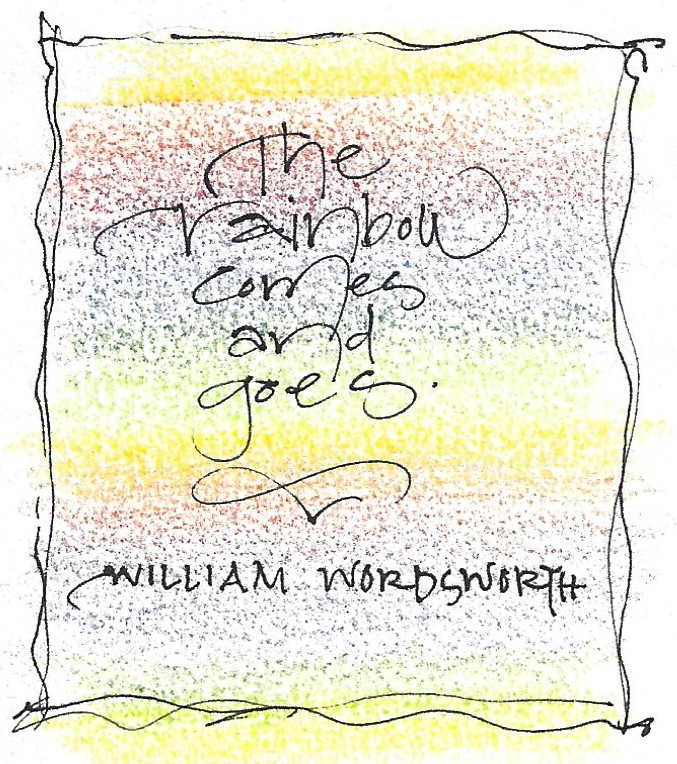 The
rainbow
comes
and
goes.
WILLIAM WORDSWORTH